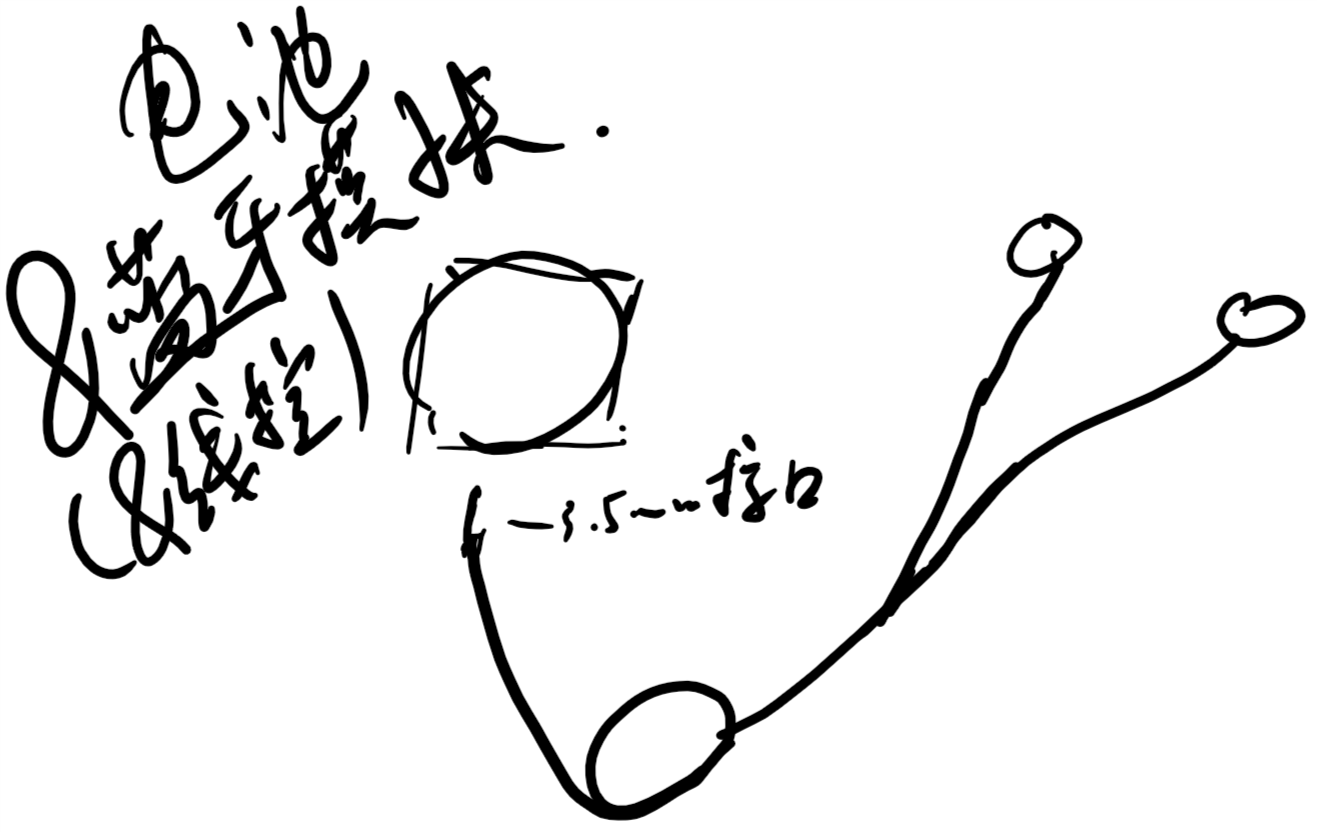 电池
&蓝牙模块.
(&线控)
3.5mm接口